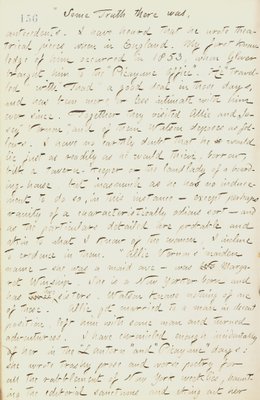 156
"Some Truth there was,
antecedents. I have heard that he wrote thea-
trical pieces when in England. My first know-
ledge of him occurred in 1853, when Glover
brought him to the "Picayune Office." He travel-
led with Haad a good deal in those days,
and has been more or less intimate with him
ever since. Together they visited Allie and
Vernon and of them Watson deposes as fol-
lows. I have no earthly doubt that he would
lie just as readily as he would thieve, borrow,
bilk a tavern-keeper or the landlady of a board-
ing-house, but inasmuch as he has no induce-
ment to do so, in this instance — except perhaps
vanity of a characteristically odious sort — and
as the particulars detailed are probable and
akin to what I know of the woman I incline
to credence in them. "Allie Vernon's" maiden
name — she was a maid once — was Marga-
ret Winship. She is a New Yorker born and
has sisters. Watson knows nothing of
these. Allie got married to a man in decent
position, left him with some man and turned
adventuress. I have chronicled enough incidentally
of her in the Lantern and Picayune days:
she wrote trashy prose and worse poetry for
all the rabblement of New York weeklies, haunt-
ing the editorial sanctums and